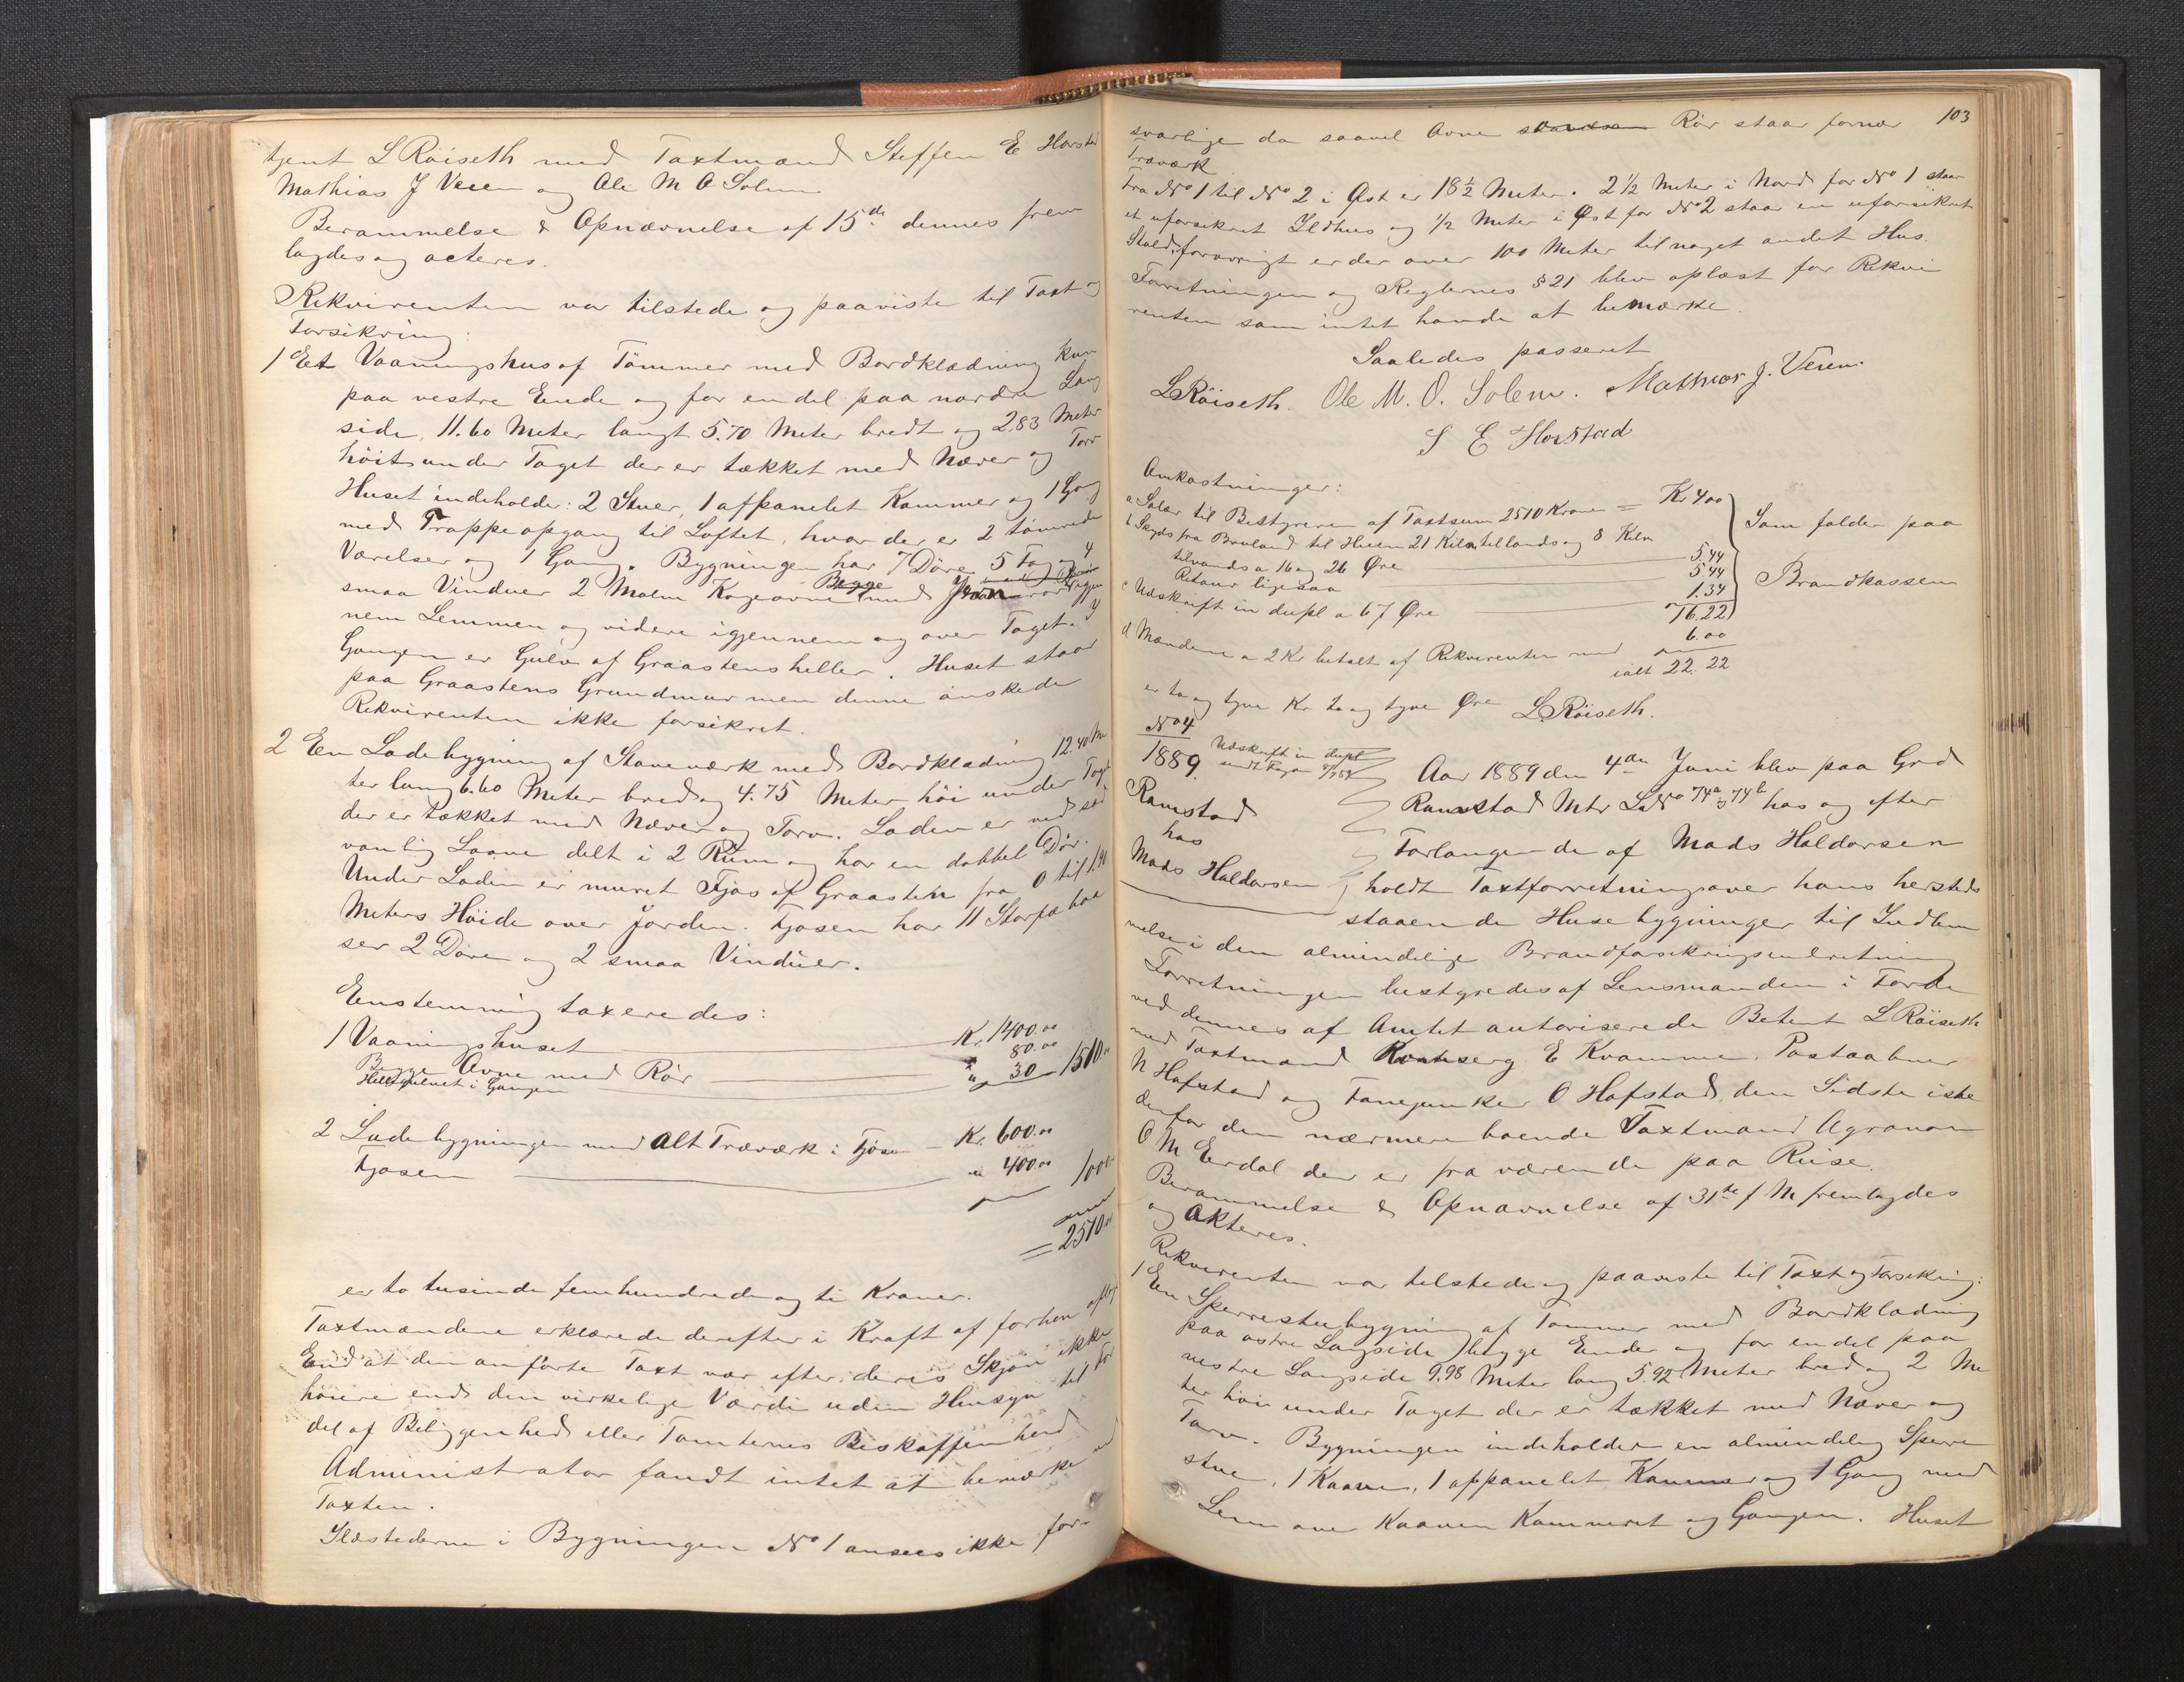 tjent L Röiseth med Taxtmænd Steffen E Horstad
Mathias J Veien og Ole M O Solem
Berammelse & Opnævnelse af 15de dennes frem
lagdes og acteres.
Rekvirenten var tilstede og paaviste til Taxt og
Forsikring:
1 Et Vaaningshus af Tömmer med Bordklædning kun
paa vestre Ende og for en del paa nordre Lang
side, 11.60 Meter langt 5.70 Meter bredt og 2.83 Meter
höit under Taget der er tækket med Næver og Torv
Huset indeholder: 2 Stuer, 1 afpanelet Kammer og 1 Gang
med Trappeopgang til Loftet, hvor der er 2 tömrede
Værelser og 1 Gang. Bygningen har 7 Döre 5 Fag og 4
smaa Vinduer 2 Malm Kogeovne Begge med Jern
nem Lemmen og videre igjennem og over Taget. I
Gangen er Gulv af Graastensheller. Huset staar
paa Graastens Grundmur men denne önskede
Rekvirenten ikke forsikret.
2 En Ladebygning af Staveværk med Bordklædning 12.40 Me
ter lang 6.60 Meter bred og 4.75 Meter höi under Taget
der er tækket med Næver og Torv. Laden er ved sæd
vanlig Laave delt i 2 Rum og har en dobbel Dör.
Under Laden er muret Fjös af Graasten fra 0 til 1.90
Meters Höide over Jorden. Fjösen har 11 Storfæbaa
ser 2 Döre og 2 smaa Vinduer.
Enstemmig taxeredes:
1 Vaaningshuset Kr. 1400.00
Begge Ovne med Rör " 80.00
Hellegulvet i Gangen " 30 1510.00
2 Ladebygningen med alt Træværk i Fjösen Kr. 600.00
Fjösen " 400.00 1000
= 2510.00
er to tusinde femhundrede og ti Kroner.
Taxtmændene erklærede derefter i Kraft af forhen aflagt
Eed at den anförte Taxt var efter deres Skjön ikke
höiere end den virkelige Værdi uden Hensyn til For
del af Beliggenhed eller Tomternes Beskaffenhed
Administrator fandt intet at bemærke ved
Taxten.
Ildstederne i Bygningen No 1 ansees ikke for-
103
svarlige da saavel Ovne Rör staar fornær
Træværk
Fra No 1 til No 2 i Öst er 18 1/2 Meter. 2 1/2 Meter i Nord for No 1 staar
et uforsikret Ildhus og 1/2 Meter i Öst for No 2 staar en uforsikret
Stald, forövrigt er der over 100 Meter til noget andet Hus.
Forretningen og Reglernes § 21 blev oplæst for Rekvi
renten som intet havde at bemærke.
Saaledes passeret
L Röiseth. Ole M. O. Solem. Mathias J. Veien.
S E Horstad
Omkostninger:
a Salær til Bestyreren af Taxtsum 2510 Kroner = Kr 4 00
b Skyds fra Bruland til Hiem 21 Kilm tillands og 8 Kilm
tilvands a 16 og 26 Öre 5.44
Retour ligesaa 5.44
c Udskrift in dupl a 67 Öre 1.34
16.22
Som falder paa
Brandkassen
d Mændene a 2 Kr betalt af Rekvirenten med 6.00
ialt 22.22
er to og tyve Kr to og tyve Öre L Röiseth.
No 4
1889.
Udskrift in dupl
Ramstad
hos
Mads Haldorsen
Aar 1889 den 4de Juni blev paa Grd
Ramstad Mtr LNo 74a & 74b hos og efter
Forlangende af Mads Haldorsen
holdt Taxtforretning over hans hersteds
staaende Husebygninger til Indlem
melse i den almindelige Brandforsikringsindretning
Forretningen bestyredes af Lensmanden i Förde
ved dennes af Amtet autoriserede Betjent L Röiseth
med Taxtmænd E Kvamme. Postaabner
N Hofstad og Fanejunker O Hofstad, den Sidste iste
denfor den nærmere boende Taxtmand Agronom
O M Erdal der er fraværende paa Reise.
Berammelse & Opnævnelse af 31te f M fremlagdes
og akteres.
Rekvirenten var tilstede og paaviste til Taxt og Forsikring:
1 En Sperrestuebygning af Tömmer med Bordklædning
paa östre Langside, begge Ender og for en del paa
vestre Langside 9.98 Meter lang 5.92 Meter bred og 2 Me
ter höi under Taget der er tækket med Næver og
Torv. Bygningen indeholder en almindelig Sperre
stue, 1 Kaave, 1 afpanelet Kammer og 1 Gang med
Lem over Kaaven Kammeret og Gangen. Huset